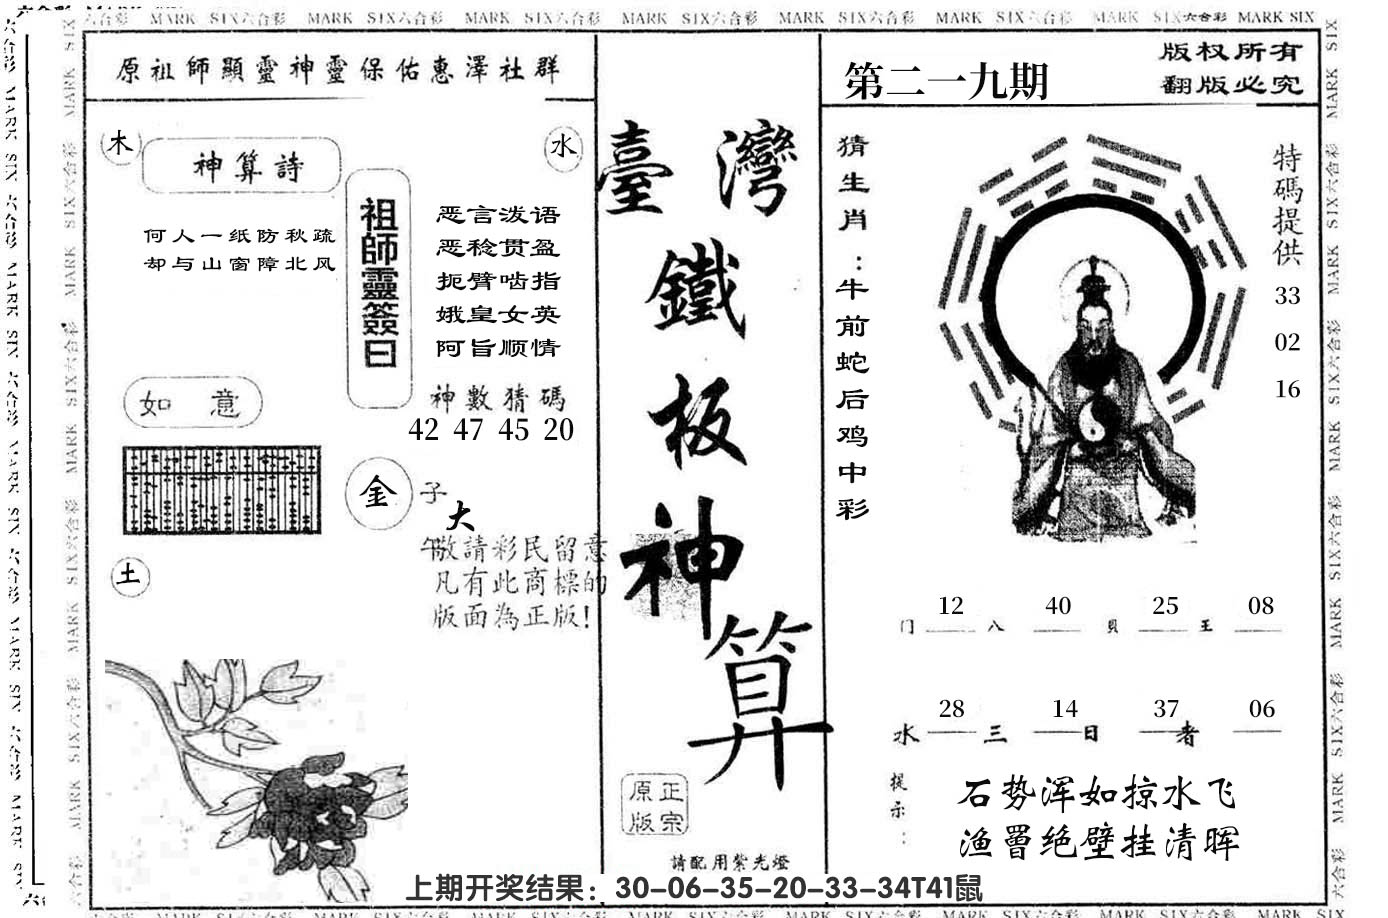 MARK SIX六合彩 MARK SIX六合彩 MARK SIX六合彩 MARK SIX六合彩 MARK SIX六合彩 MARK SIX六合彩 MARK SIX六合彩 MARK SIX
原祖師顯靈神靈保佑惠澤社群
木
水
神算詩
何人一纸防秋疏
却与山窗障北风
祖師靈簽曰
恶言泼语
恶稔贯盈
扼臂啮指
娥皇女英
阿旨顺情
神數猜碼
42 47 45 20
如意
金
子
大
午
土
敬請彩民留意
凡有此商標的
版面為正版!
臺灣
鐵
板
神
算
正宗
原版
請配用紫光燈
第二一九期
版权所有
翻版必究
猜生肖:牛前蛇后鸡中彩
特碼提供
33
02
16
12 40 25 08
门 八 貝 王
28 14 37 06
水 三 日 者
提示:
石势浑如掠水飞
渔罾绝壁挂清晖
上期开奖结果：30-06-35-20-33-34T41鼠